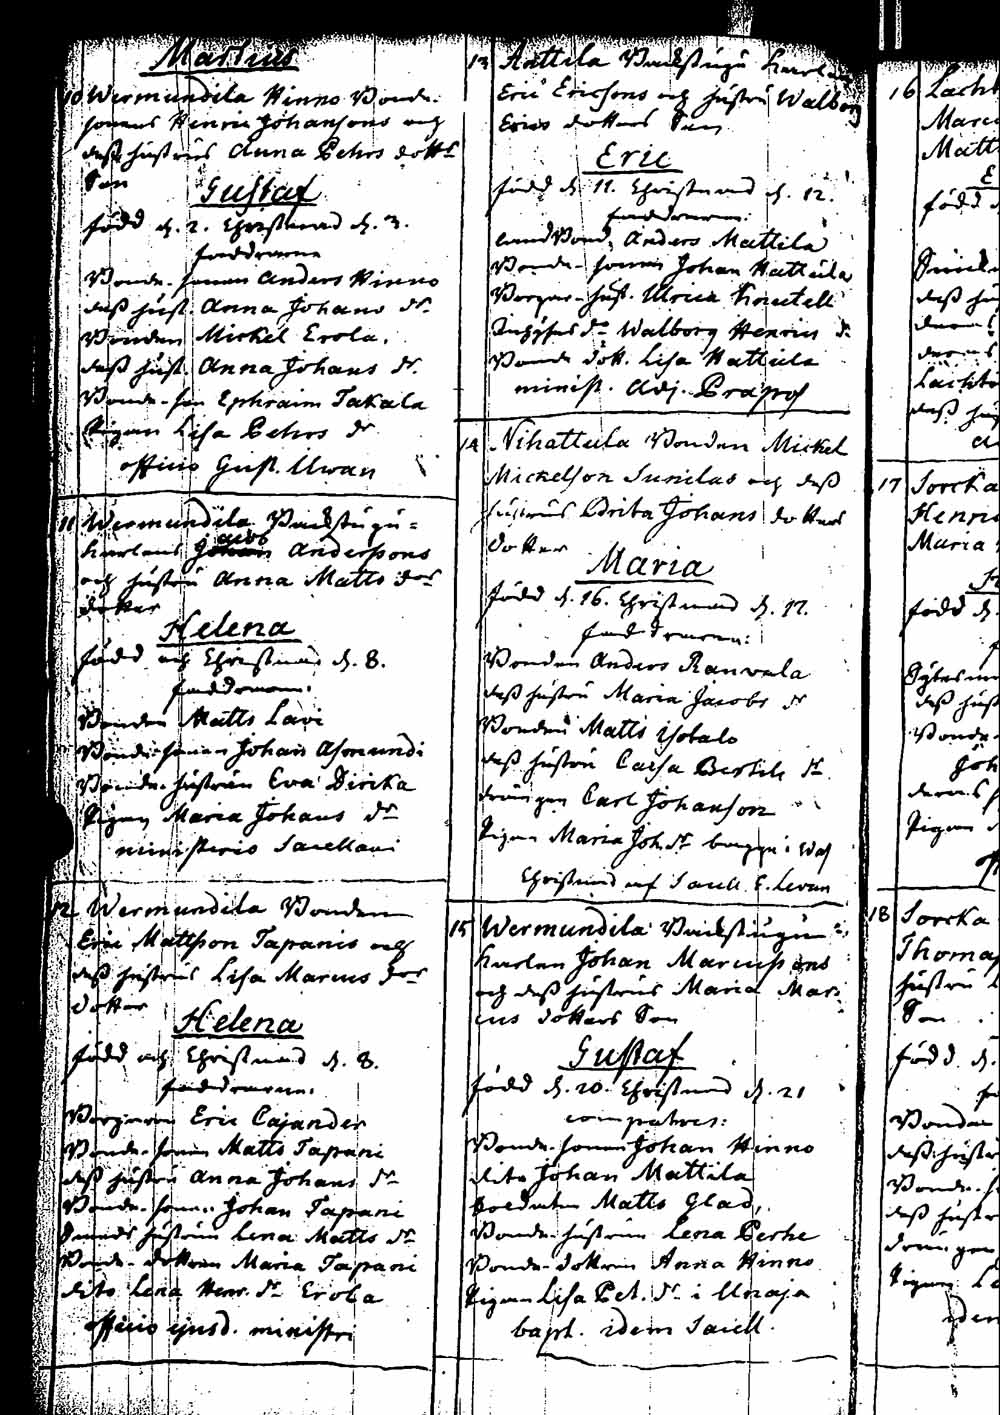 Martius
10 Wermundila Hinno Bonde-
sonens Henric Johansons och
dess hustrus Anna Pehrs dotts
Son
Gustaf
född d. 2. Christnad d. 3.
faddrarne
Bonde-sonen Anders Hinno
dess hust. Anna Johans dr.
Bonden Mickel Erola.
dess hust. Anna Johans dr.
Bonde-son Ephraim Takala
Pigan Lisa Pehrs dr
officio Gust. Uwan
11 Wermundila Backstugu=
karlens Jacob Anderssons
och hustru Anna Matts dors
dotter
Helena
född och Christnad d. 8.
faddrarne:
Bonden Matts Lavi
Bonde-sonen Johan Asmundi
Bonde-hustrun Eva Dircka
Pigan Maria Johans dr
ministerio Saxellani
12 Wermundila Bonden
Eric Mattsson Tapanis och
dess hustrus Lisa Marcus dors
dotter
Helena
född och Christnad d. 8.
faddrarne:
Borgaren Eric Cajander
Bonde-sonen Matts Tapani
dess hustru Anna Johans dr
Bonde-sonen Johan Tapani
hustrun Lena Matts dr
Bonde-dottren Maria Tapani
dito Lena Henr. dr Erola
officio ejusd. ministri
13 Anttila Backstugu karlen
Eric Ericsons och hustru Walborg
Erics dotters Son
Eric
född d. 11. Christnad d. 12.
faddrarne:
Anders Mattila
Bonde-sonen Johan Hattula
Borgar-hust. Ulrica
Walborg Henrics dr
Bonde dott. Lisa Hattula
minist. Adj.
14 Nihattula Bonden Mickel
Mickelson Sunilas och dess
hustrus Brita Johans dotters
dotter
Maria
född d. 16. Christnad d. 17.
faddrarne:
Bonden Anders Ranvala
dess hustru Maria Jacobs dr
Bonden Matts Isotalo
dess hustru Caisa Bertils dr
drängen Carl Johanson
Pigan Maria Joh. dr
Christnad af Sacell. E.
15 Wermundila Backstugu
karlen Johan Marcussons
och dess hustrus Maria Mar-
cus dotters Son
Gustaf
född d. 20. Christnad d. 21
compatres:
Bonde-sonen Johan Hinno
dito Johan Mattila
Soldaten Matts Glad,
Bonde-hustrun Lena Perhe
Bonde-dottren Anna Hinno
Pigan Lisa Pet. dr i Unaja
bapt. idem Sacell.
16 Lacht
Marc
Matt
E
född d
dess hu
dess hu
17 Sorcka
Henri
Maria
född d
dess hust
Bonde-
Joh
Pigan
18 Sorcka
Thomas
hustru
Son
född d.
Bonden
dess hustr
Bonde-s
dess hustr
drängen
Pigan L
idem